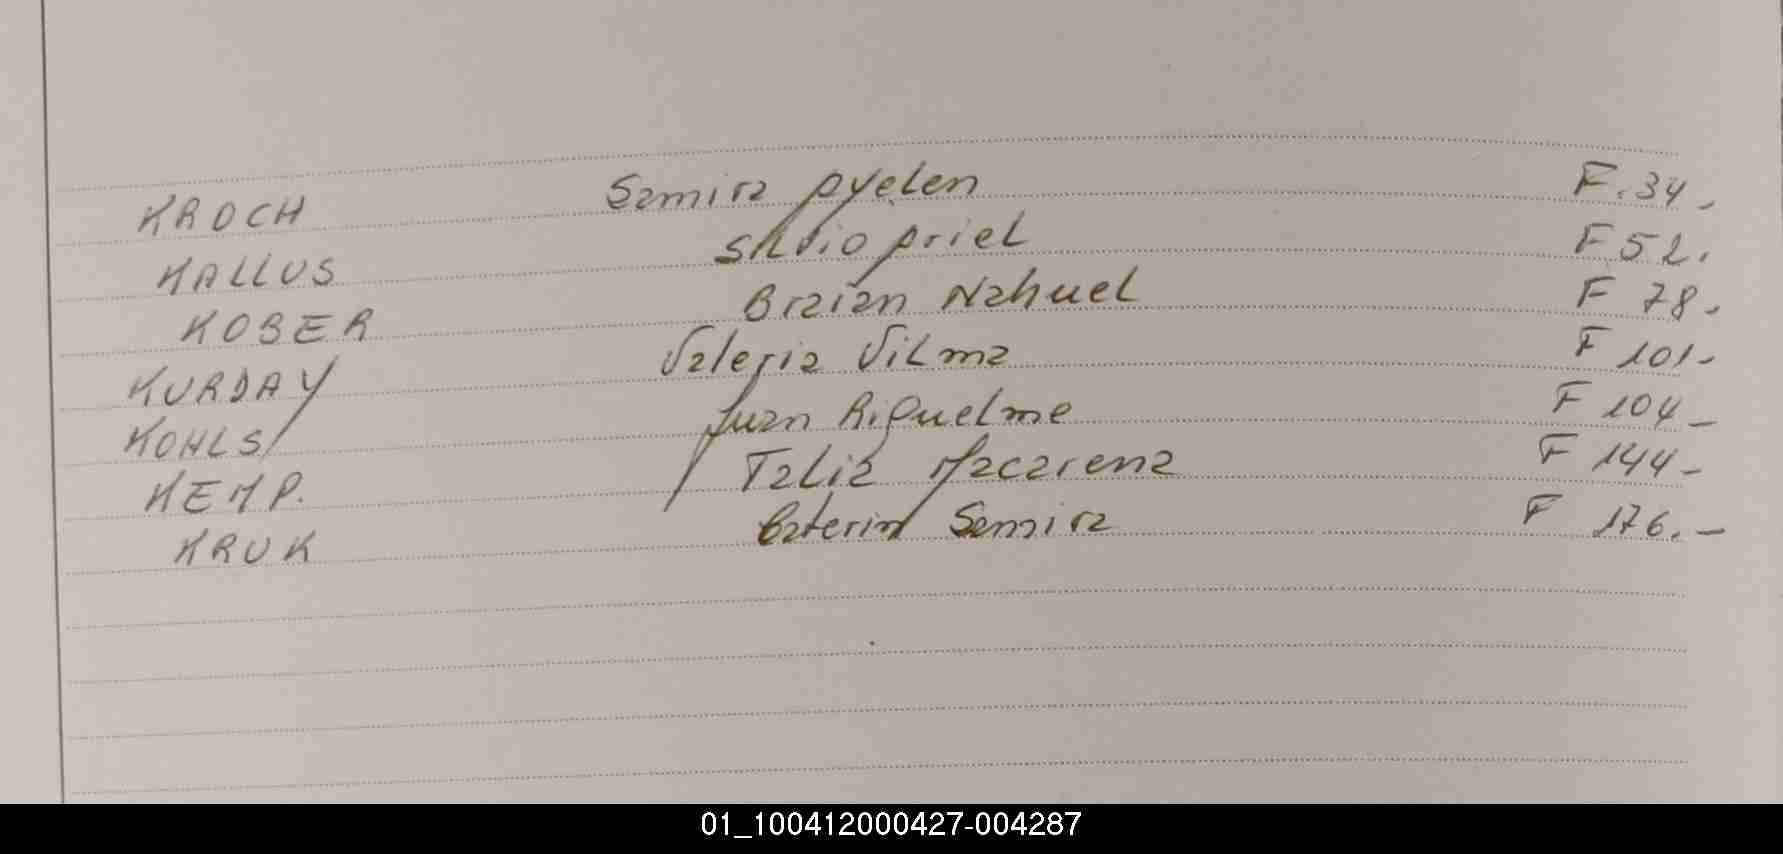 KROCH Samira Ayelen F. 34.
KALLUS Silvio Ariel F 52.
KOBER Braian Nahuel F 78.
KURDAY Valeria Vilma F 101-
KOHLS Juan Riquelme F 104-
KEMP. Talia Macarena F 144-
KRUK Caterin Samira F 176.-
01_100412000427-004287